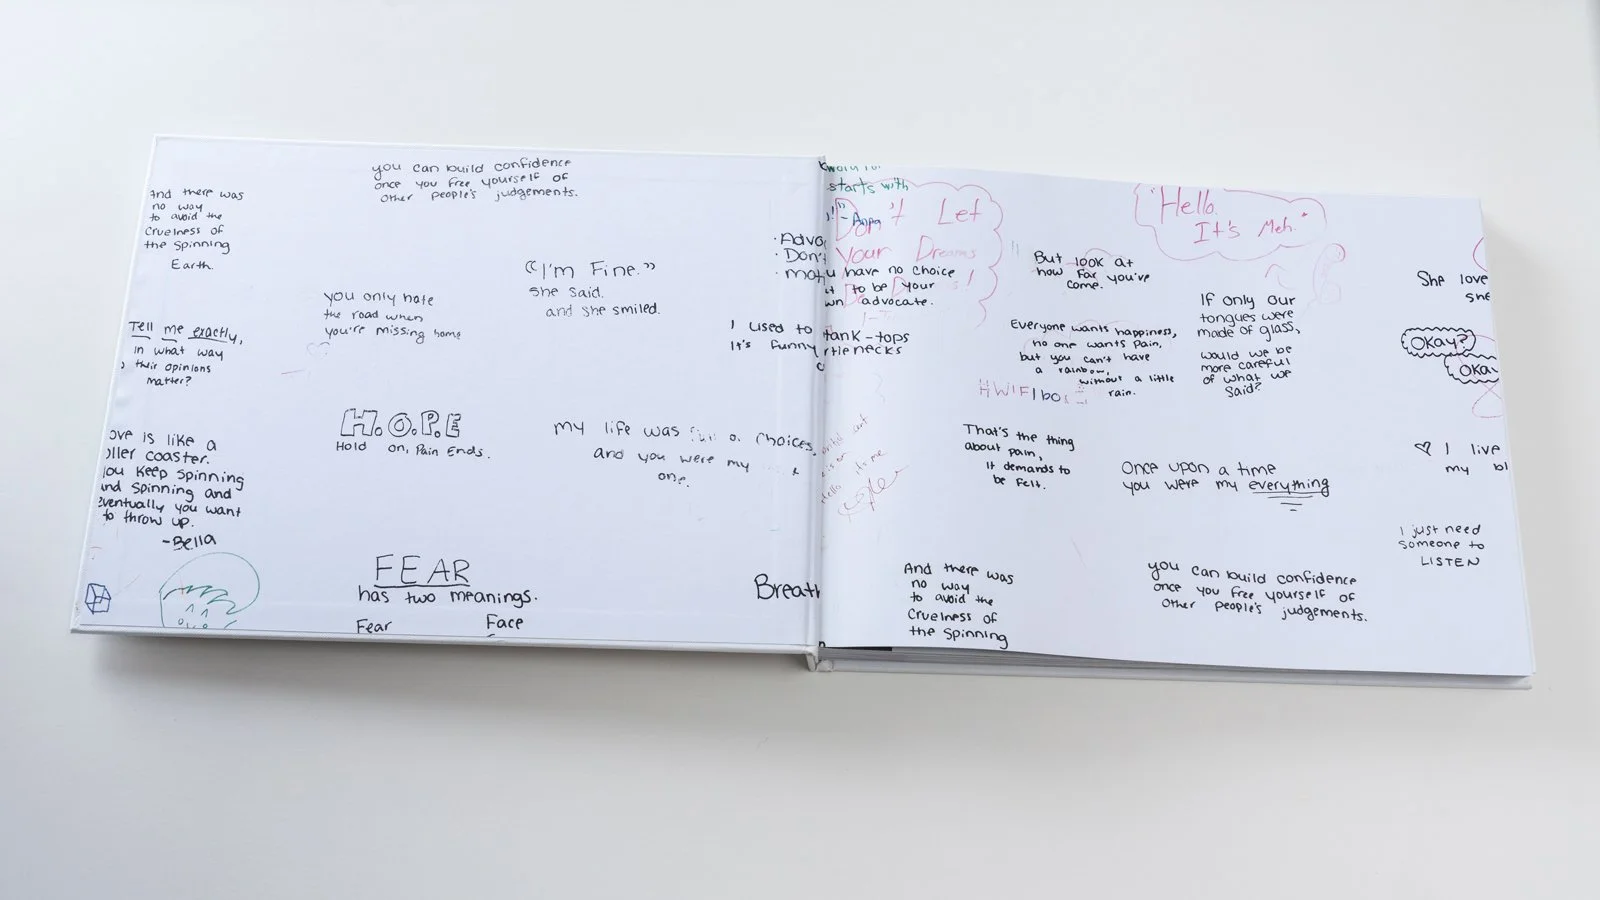 And there was
no way
to avoid the
Cruelness of
the Spinning
Earth.
you can build confidence
once you free yourself of
other people's judgements.
"I'm Fine."
she said.
and she smiled.
you only hate
the road when
you're missing home
Tell me exactly,
in what way
their opinions
matter?
H.O.P.E
Hold on, Pain Ends.
my life was of choices,
and you were my
one.
ove is like a
oller coaster.
you keep spinning
and spinning and
eventually you want
to throw up.
-Bella
FEAR
has two meanings.
Fear
Face
· Advo
· Don't
I used to
It's funny
Breath
starts with
Don't Let
Your Dreams
u have no choice
t to be your
wn advocate.
tank-tops
rtlenecks
"Hello.
It's Meh."
But look at
how far you've
come.
Everyone wants happiness,
no one wants pain,
but you can't have
a rainbow,
without a little
rain.
If only our
tongues were
made of glass,
would we be
more careful
of what we
said?
She love
she
Okay?
Oka
That's the thing
about pain,
it demands to
be felt.
Once upon a time
you were my everything
I live
my bl
I just need
someone to
LISTEN
And there was
no way
to avoid the
Cruelness of
the Spinning
you can build confidence
once you free yourself of
other people's judgements.